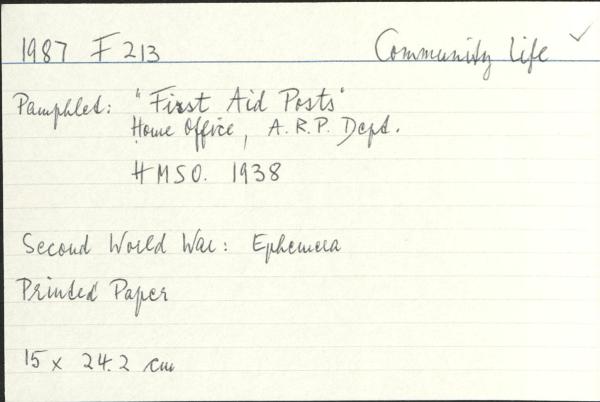 1987 F 213 Community Life ✓
Pamphlet: "First Aid Posts"
Home Office, A.R.P. Dept.
HMSO. 1938
Second World War: Ephemera
Printed Paper
15 x 24.2 cm